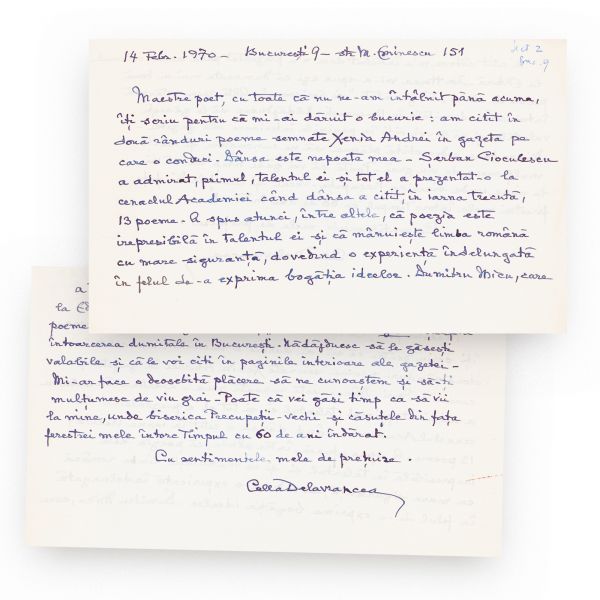 14 Febr. 1970 – București 9 – str. M. Eminescu 151
act 2
Buc. 9
Maestre poet, cu toate că nu ne-am întâlnit până acuma,
îți scriu pentru că mi-ai dăruit o bucurie: am citit în
două rânduri poeme semnate Xenia Andrei în gazeta pe
care o conduci. Dânsa este nepoata mea – Șerban Cioculescu
a admirat, primul, talentul ei și tot el a prezentat-o la
cenaclul Academiei când dânsa a citit, în iarna trecută,
13 poeme. A spus atunci, între altele, că poezia este
irepresibilă în talentul ei și că mânuiește limba română
cu mare siguranță, dovedind o experiență îndelungată
în felul de-a exprima bogăția ideelor. Dumitru Micu, care
a
la Ed
poeme
întoarcerea dumitale în București. Nădăjduesc să le găsești
valabile și că le voi citi în paginile interioare ale gazetei –
Mi-ar face o deosebită plăcere să ne cunoaștem și să-ți
mulțumesc de viu grai – Poate că vei găsi timp ca să vii
la mine, unde biserica Precupeții-vechi și căsuțele din fața
ferestrei mele întorc Timpul cu 60 de ani îndărăt.
Cu sentimentele mele de prețuire.
Cella Delavrancea